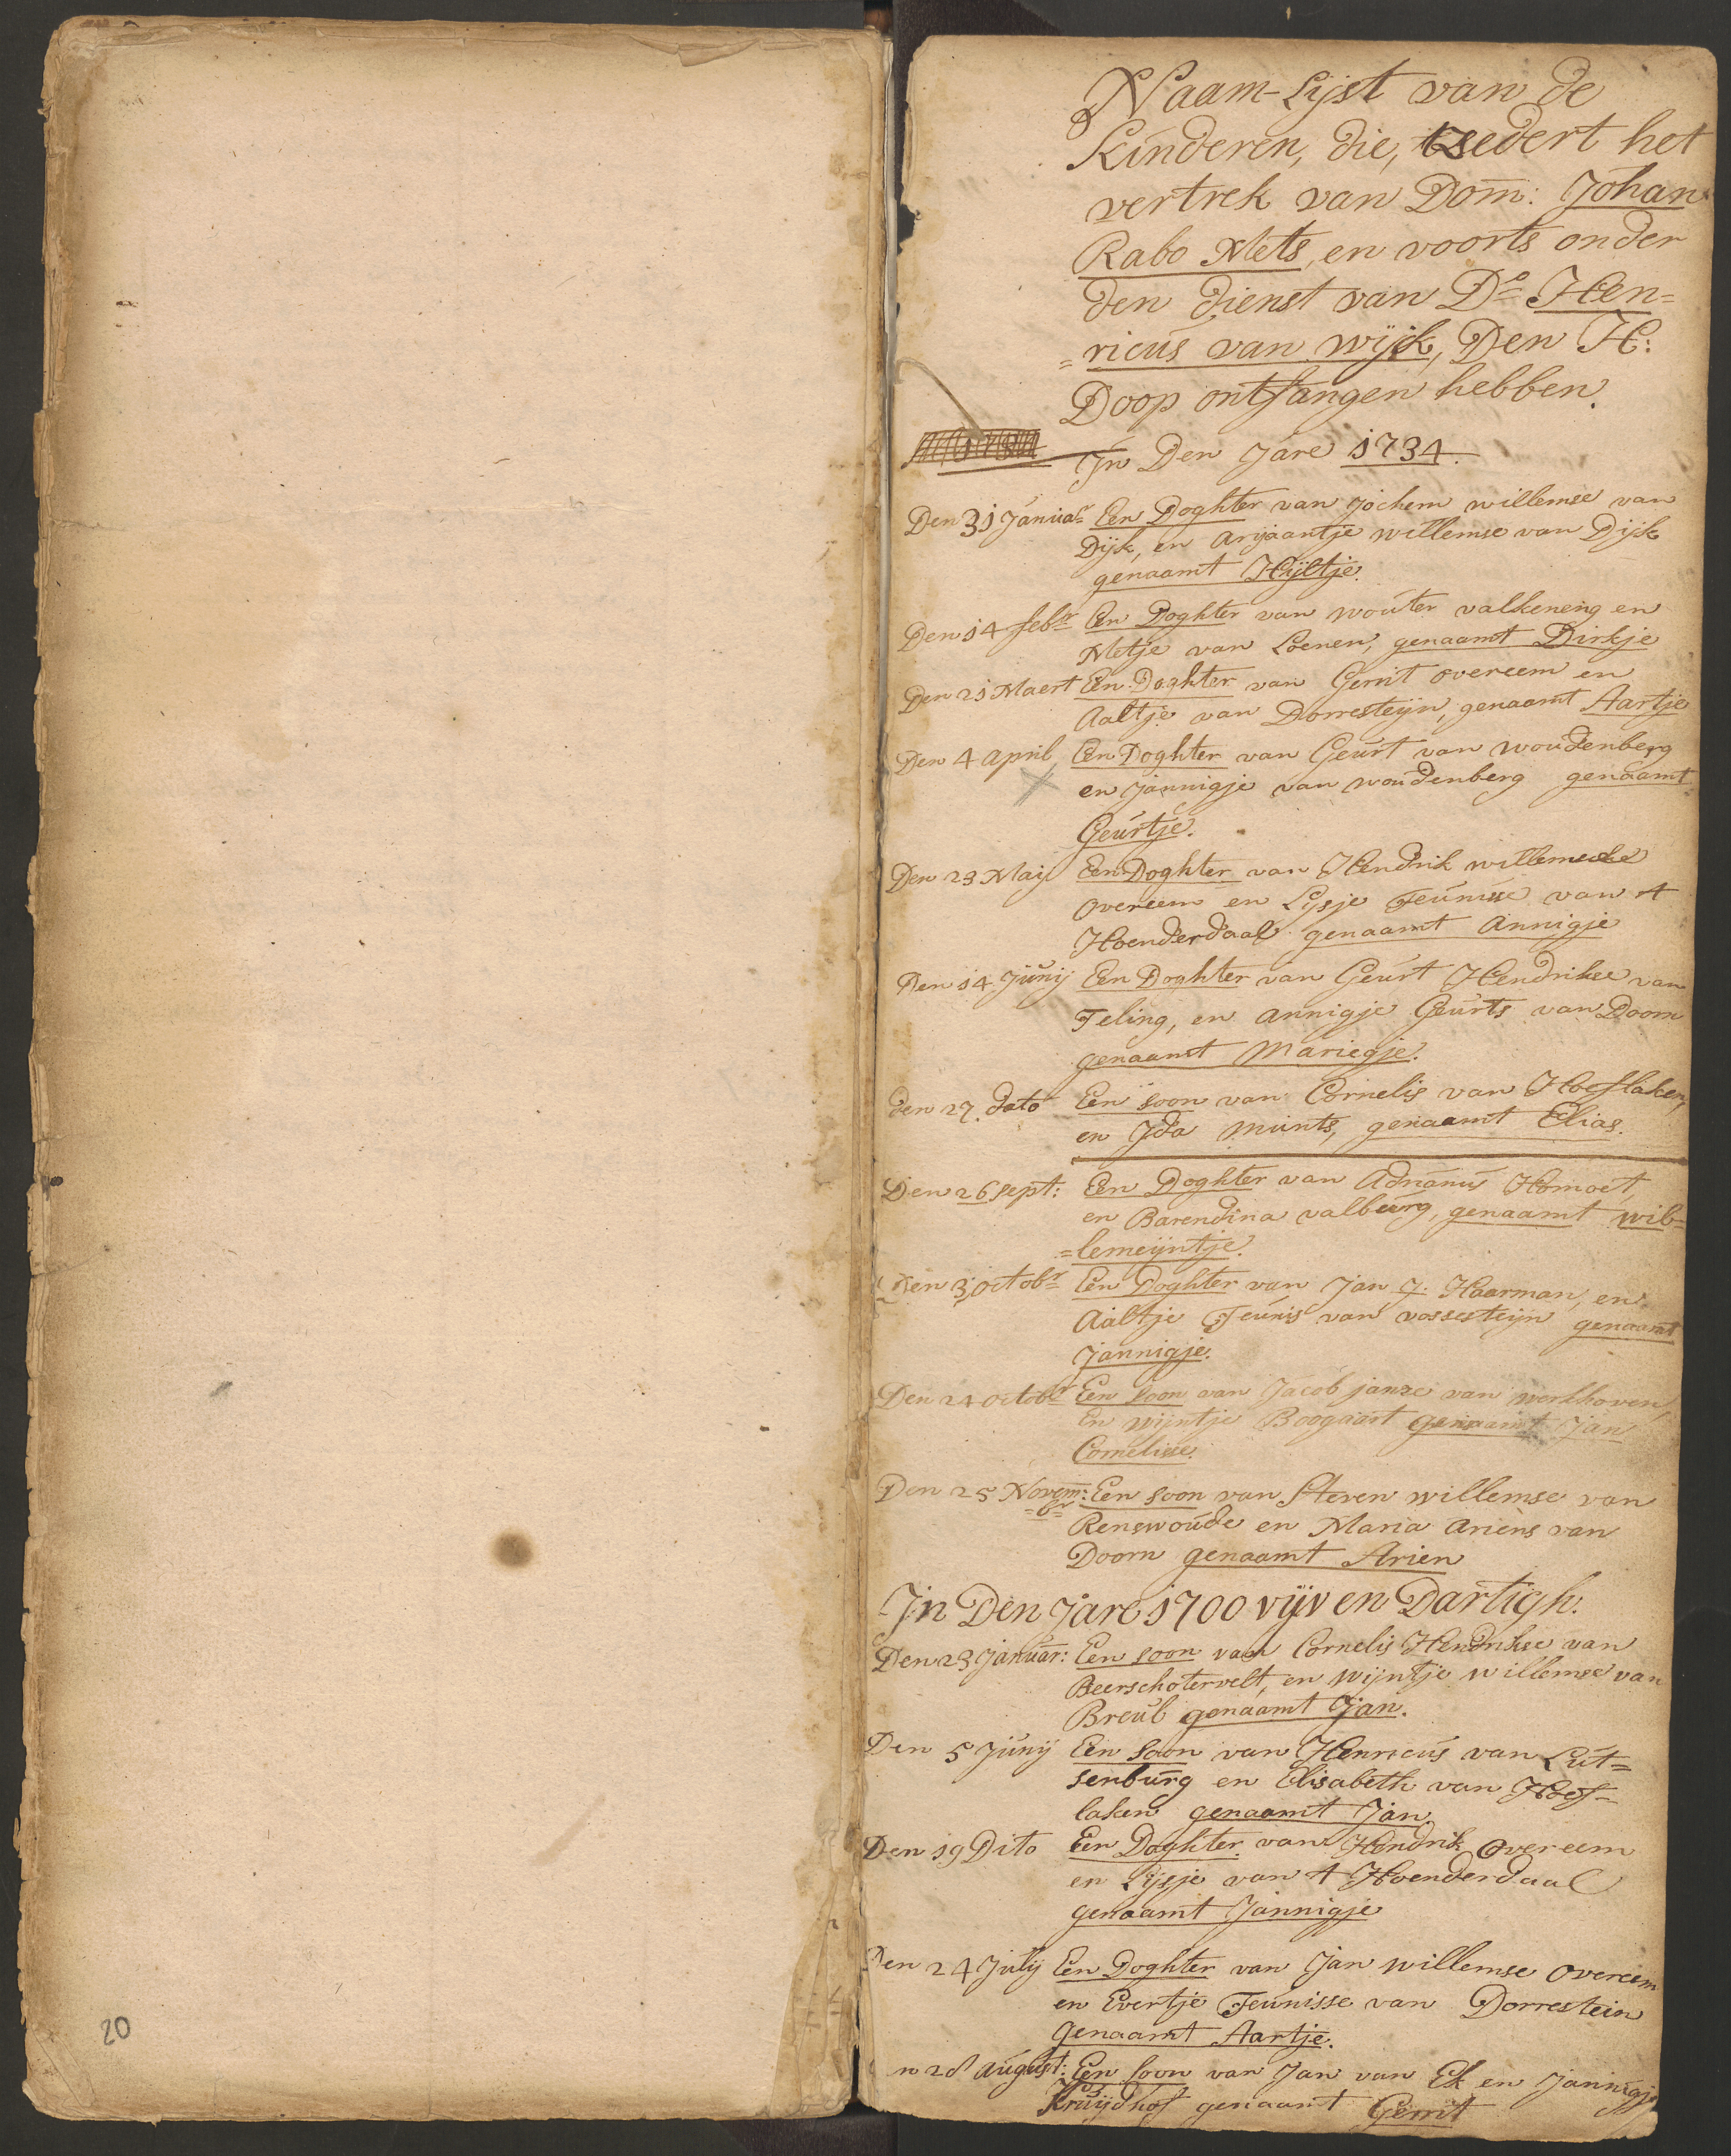 Naam-Lijst van de
Kinderen, die, tzedert het
vertrek van Dom: Johan
Rabo Mets, en voorts onder
den dienst van Do Hen=
=ricus van wijck, Den H:
Doop ontfangen hebben.
In Den Jare 1734.
Den 31 Januar Een Doghter van Jochem willemse van
Dijk, en Arjaantje willemse van Dijk
genaamt Hijltje.
Den 14 febr Een Doghter van wouter valkeneng en
Metje van Loenen, genaamt Dirkje
Den 21 Maert Een Doghter van Gerrit overeem en
Aaltje van Dorresteijn, genaamt Aartje
Den 4 april Een Doghter van Geurt van woudenberg
en Jannigje van woudenberg genaamt
Geurtje.
Den 23 Maij Een Doghter van Hendrik
overeem en Lysje Teunisse van t
Hoenderdaal genaamt Annigje
Den 14 Junij Een Doghter van Geurt Hendrikse van
Teling, en Annigje Geurts van Doorn
genaamt Mariegje.
den 27 dato Een soon van Cornelis van Hoeflaken,
en Ida Munts, genaamt Elias.
Den 26 sept: Een Doghter van Adrianus Homoet,
en Barendina valburg, genaamt wil=
=lemeijntje.
Den 3 octobr Een Doghter van Jan J. Haarman, en
Aaltje Teunis van vossesteijn genaamt
Jannigje.
Den 24 octobr Een soon van Jacob janze van werkhoven,
En wijntje Bogaart genaamt Jan
Cornelisse.
Den 25 Novem: Een soon van Steven willemse van
=br=
Renswoude en Maria Ariens van
Doorn genaamt Arien
In Den Jare 1700 vijv en Dartigh.
Den 23 Januar: Een soon van Cornelis Hendrikse van
Beerschotervelt, en wijntje willemse van
Breul genaamt Jan.
Den 5 Junij Een soon van Henricus van Lut=
senburg en Elisabeth van Hoef=
laken genaamt Jan
Den 19 Dito Een Doghter van Hendrik Overeem
en Lijsje van t Hoenderdaal
genaamt Jannigje
Den 24 July Een Doghter van Jan willemse overeem
en Evertje Teunisse van Dorrestein
Genaamt Aartje.
n 28 august: Een soon van Jan van Ek en Jannigje
Kruijdhof genaamt Gerrit
20